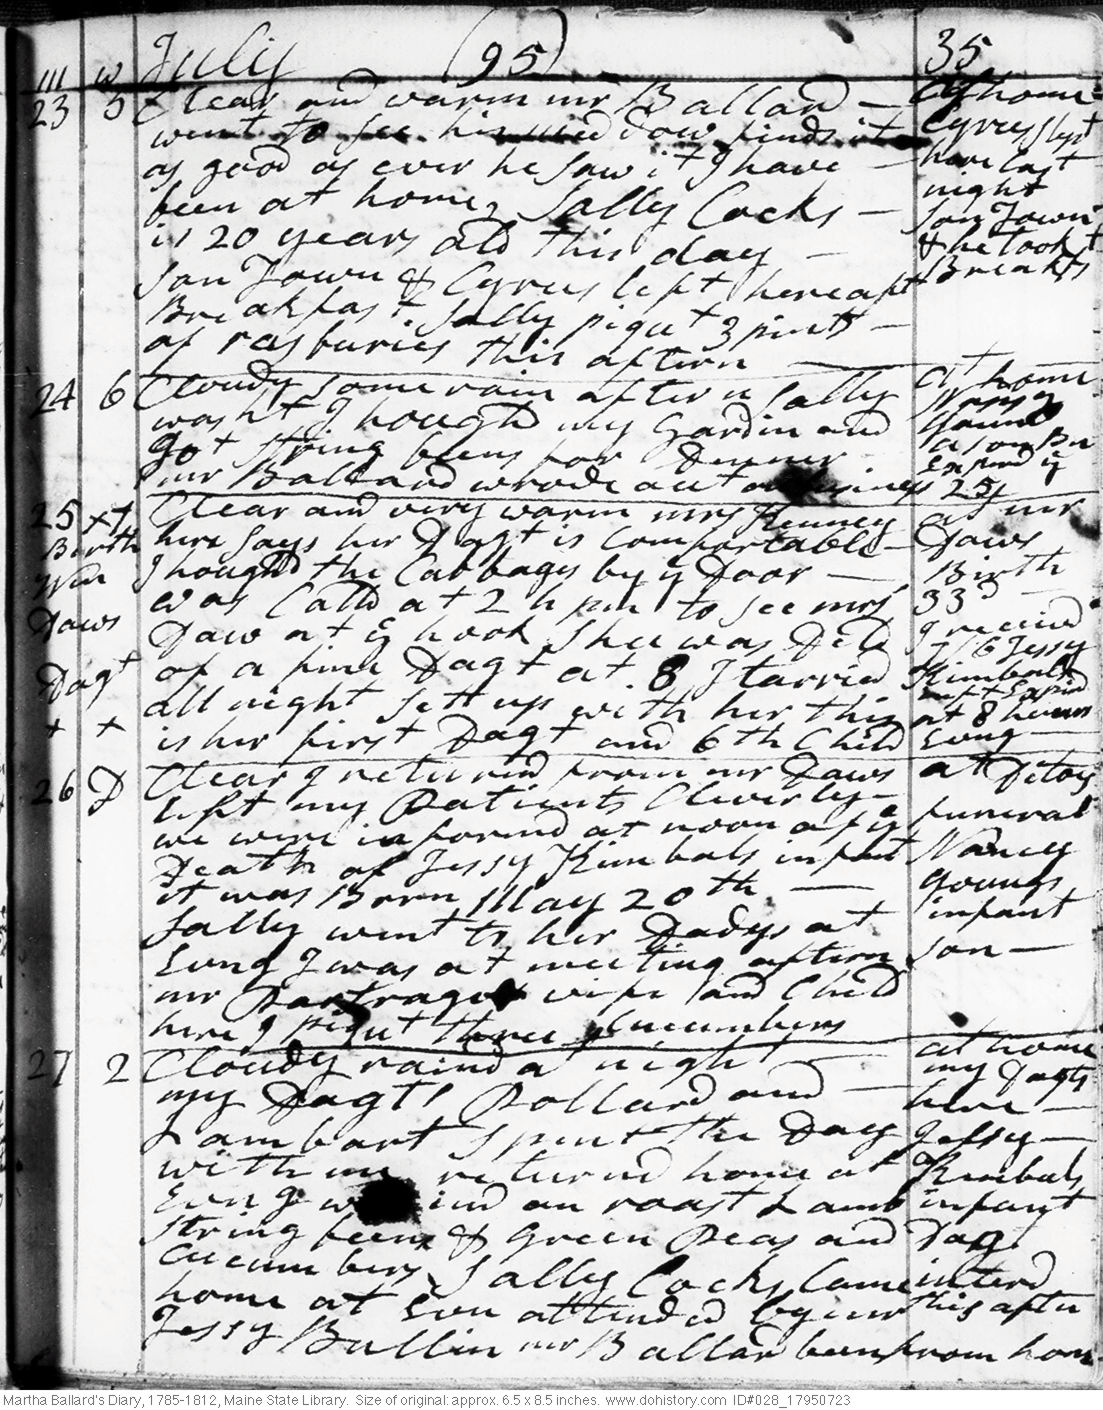 m w July (95) 35
23 5 Clear and warm mr Ballard —
went to see his medow finds it
as good as ever he saw it I have —
been at home, Sally Cocks —
is 20 years old this day —
son Town & Cyrus left here aft
Breakfast. Sally piqut 3 pints —
of rasburies this aftern
at home
Cyrus slept
here last
night
son Town
& he took
Breakft
24 6 Cloudy some rain aftern Sally
washt I houghd my Gardin and
got string beens for Dinner
mr Ballard wrode out on
at home
a son
Expird ye
25
25 x 7 Clear and very warm mrs Kenney
here says her Dagt is Comfortable —
I houghd the Cabbages by ye Door —
was Calld at 2 h pm to see mrs
Daw at ye hook shee was Deld
of a fine Dagt at 8 I tarried
all night sett up with her this
is her first Dagt and 6th Child
Birth
Wm
Daws
Dagt
+ +
at mr
Daws
Birth
33d
I received
7/6 Jessy
Kimbals
inft Expird
at 8 hours
Evng
26 D Clear I returnd from mr Daws
left my Patients Cleverly —
we were informd at noon of ye
Death of Jessy Kimbals infant
it was Born May 20th —
Sally went to her Dadys at
Evng I was at meeting aftern
mr Partrage wife and Child
here I piqut three Cucumbers
at Ditoes
funeral
Nancy
youngs
infant
son —
27 2 Cloudy raind at night
my Dagts Pollard and —
Lambart spent the Day
with me returnd home at
Evng we dind on roast Lamb
string beens & green Peas and
Cucumbers, Sally Cocks Came
home at Evn attended by mr
Jessy Bullin mr Ballard been from home
at home
my Dagts
here —
Jessy —
Kimbals
infant
Dag
interd
this aftn
Martha Ballard's Diary, 1785-1812, Maine State Library. Size of original: approx. 6.5 x 8.5 inches. www.dohistory.com ID#028_17950723